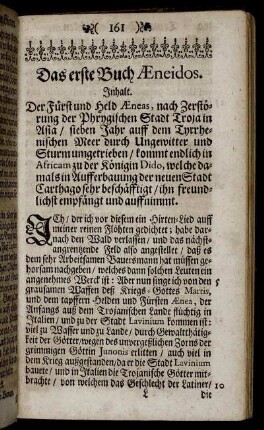 ( 161 )
Das erste Buch Æneidos.
Inhalt.
Der Fürst und Held Æneas, nach Zerstö-
rung der Phrygischen Stadt Troja in
Asia / sieben Jahr auff dem Tyrrhe-
nischen Meer durch Ungewitter und
Sturm umgetrieben / kommt endlich in
Africam zu der Königin Dido, welche da-
mals in Aufferbauung der neuen Stadt
Carthago sehr beschäfftigt / ihn freund-
lichst empfängt und auffnimmt.
ICh / der ich vor diesem ein Hirten-Lied auff
meiner reinen Flöhten gedichtet; habe dar-
nach den Wald verlassen / und das nächst-
angrentzende Feld also angestellet / daß es
dem sehr Arbeitsamen Bauersmann hat müssen ge-
horsam nachgeben / welches dann solchen Leuten ein
angenehmes Werck ist: Aber nun singe ich von den 5
grausamen Waffen deß Kriegs-Gottes Martis,
und dem tapffern Helden und Fürsten Ænea, der
Anfangs auß dem Trojanischen Lande flüchtig in
Italien / und zu der Stadt Lavinium kommen ist:
viel zu Wasser und zu Lande / durch Gewaltthätig-
keit der Götter / wegen des unvergeßlichen Zorns der
grimmigen Göttin Junonis erlitten / auch viel in
dem Krieg außgestanden / da er die Stadt Lavinium
bauete / und in Italien die Trojanische Götter mit-
brachte / von welchem das Geschlecht der Latiner / 10
L die